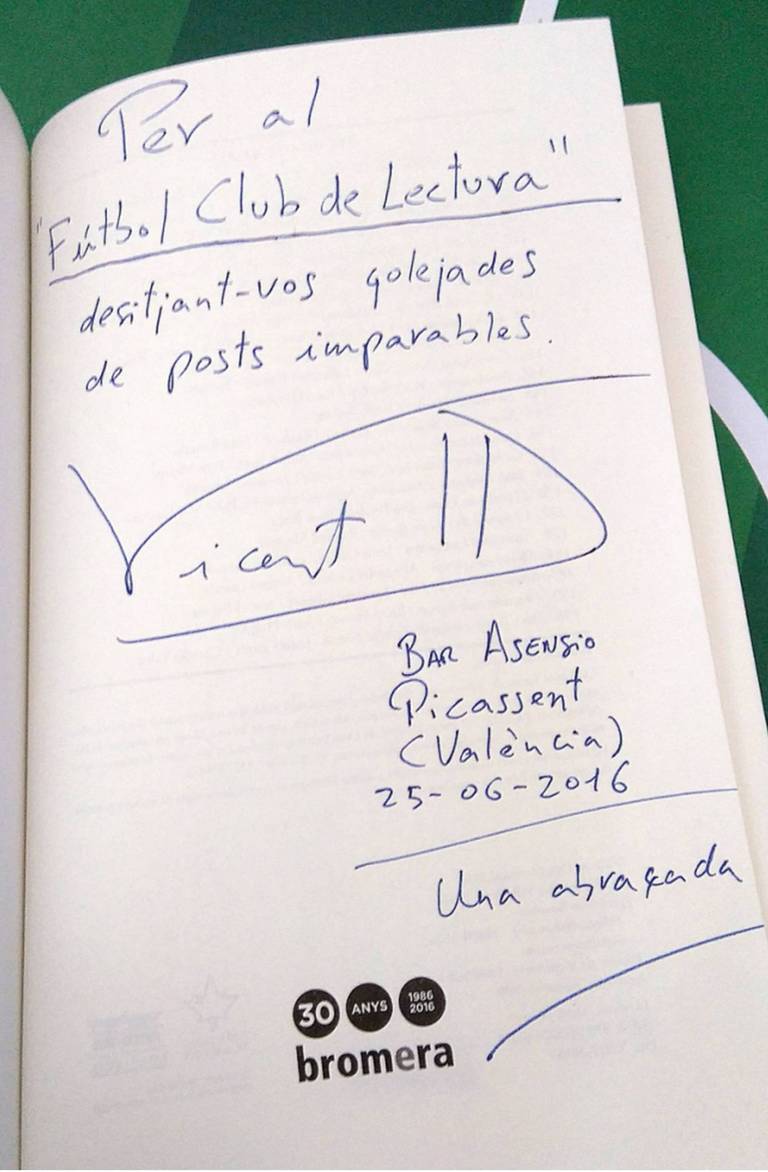 Per al
"Fútbol Club de Lectura"
desitjant-vos golejades
de posts imparables.
Vicent
BAR ASENSiO
Picassent
(València)
25-06-2016
Una abraçada
30 ANYS 1986 2016
bromera